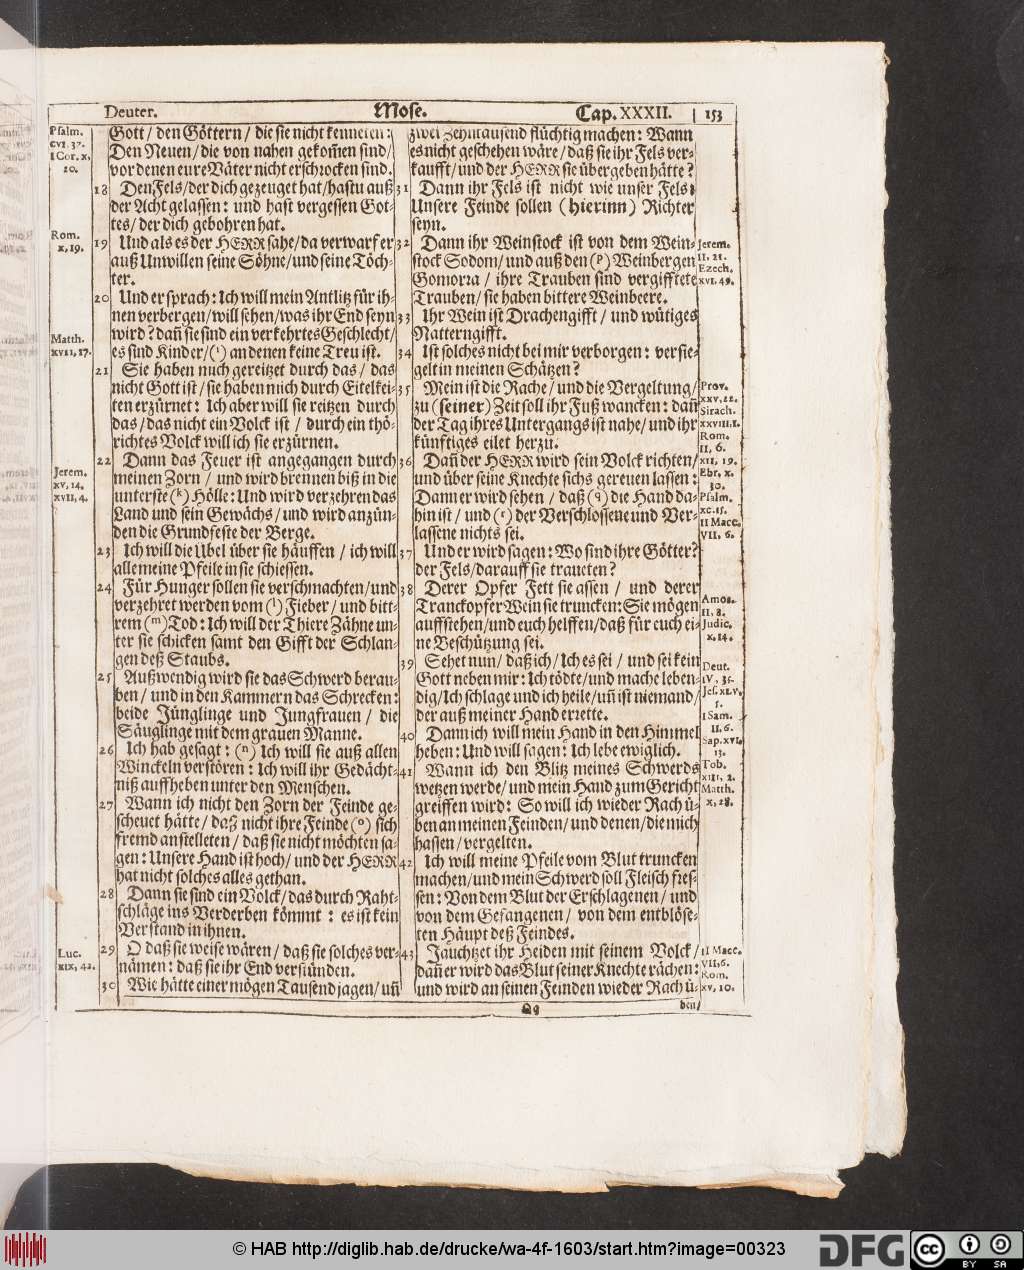 Deuter. Mose. Cap. XXXII. 153
Psalm.
cvi, 37.
I Cor. x,
20.
Rom.
x, 19.
Matth.
xvii, 17.
Jerem.
xv, 14.
xvii, 4.
Luc.
xix, 42.
Gott / den Göttern / die sie nicht kenneten:
Den Neuen / die von nahen gekom̃en sind /
vor denen eure Väter nicht erschrocken sind.
18 Den Fels / der dich gezeuget hat / hastu auß
der Acht gelassen: und hast vergessen Got-
tes / der dich gebohren hat.
19 Und als es der HERR sahe / da verwarf er
auß Unwillen seine Söhne / und seine Töch-
ter.
20 Und er sprach: Ich will mein Antlitz für ih-
nen verbergen / will sehen / was ihr End seyn
wird? dañ sie sind ein verkehrtes Geschlecht /
es sind Kinder / (i) an denen keine Treu ist.
21 Sie haben mich gereitzet durch das / das
nicht Gott ist / sie haben mich durch Eitelkei-
ten erzürnet: Ich aber will sie reitzen durch
das / das nicht ein Volck ist / durch ein thö-
richtes Volck will ich sie erzürnen.
22 Dann das Feuer ist angegangen durch
meinen Zorn / und wird brennen biß in die
unterste (k) Hölle: Und wird verzehren das
Land und sein Gewächs / und wird anzün-
den die Grundfeste der Berge.
23 Ich will die Übel über sie häuffen / ich will
alle meine Pfeile in sie schiessen.
24 Für Hunger sollen sie verschmachten / und
verzehret werden vom (l) Fieber / und bitt-
rem (m) Tod: Ich will der Thiere Zähne un-
ter sie schicken samt den Gifft der Schlan-
gen deß Staubs.
25 Außwendig wird sie das Schwerd berau-
ben / und in den Kammern das Schrecken:
beide Jünglinge und Jungfrauen / die
Säuglinge mit dem grauen Manne.
26 Ich hab gesagt: (n) Ich will sie auß allen
Winckeln verstören: Ich will ihr Gedächt-
niß auffheben unter den Menschen.
27 Wann ich nicht den Zorn der Feinde ge-
scheuet hätte / daß nicht ihre Feinde (o) sich
fremd anstelleten / daß sie nicht möchten sa-
gen: Unsere Hand ist hoch / und der HERR
hat nicht solches alles gethan.
28 Dann sie sind ein Volck / das durch Raht-
schläge ins Verderben kömmt: es ist kein
Verstand in ihnen.
29 O daß sie weise wären / daß sie solches ver-
nämen: daß sie ihr End verstünden.
30 Wie hätte einer mögen Tausend jagen / uñ
zwei Zehntausend flüchtig machen: Wann
es nicht geschehen wäre / daß sie ihr Fels ver-
kaufft / und der HERR sie übergeben hätte?
31 Dann ihr Fels ist nicht wie unser Fels:
Unsere Feinde sollen (hierinn) Richter
seyn.
32 Dann ihr Weinstock ist von dem Wein-
stock Sodom / und auß den (p) Weinbergen
Gomorra / ihre Trauben sind vergifftete
Trauben / sie haben bittere Weinbeere.
33 Ihr Wein ist Drachengifft / und wütiges
Natterngifft.
34 Ist solches nicht bei mir verborgen: versie-
gelt in meinen Schätzen?
35 Mein ist die Rache / und die Vergeltung /
zu (seiner) Zeit soll ihr Fuß wancken: dañ
der Tag ihres Untergangs ist nahe / und ihr
künftiges eilet herzu.
36 Dañ der HERR wird sein Volck richten /
und über seine Knechte sichs gereuen lassen:
Dann er wird sehen / daß (q) die Hand da-
hin ist / und (r) der Verschlossene und Ver-
lassene nichts sei.
37 Und er wird sagen: Wo sind ihre Götter?
der Fels / darauff sie traueten?
38 Derer Opfer Fett sie assen / und derer
Tranckopfer Wein sie truncken: Sie mögen
auffstehen / und euch helffen / daß für euch ei-
ne Beschützung sei.
39 Sehet nun / daß ich / Ich es sei / und sei kein
Gott neben mir: Ich tödte / und mache leben-
dig / Ich schlage und ich heile / uñ ist niemand /
der auß meiner Hand errette.
40 Dann ich will mein Hand in den Himmel
heben: Und will sagen: Ich lebe ewiglich.
41 Wann ich den Blitz meines Schwerds
wetzen werde / und mein Hand zum Gericht
greiffen wird: So will ich wieder Rach ü-
ben an meinen Feinden / und denen / die mich
hassen / vergelten.
42 Ich will meine Pfeile vom Blut truncken
machen / und mein Schwerd soll Fleisch fres-
sen: Von dem Blut der Erschlagenen / und
von dem Gefangenen / von dem entblöse-
ten Häupt deß Feindes.
43 Jauchtzet ihr Heiden mit seinem Volck /
dañ er wird das Blut seiner Knechte rächen:
und wird an seinen Feinden wieder Rach ü-
Jerem.
II. 21.
Ezech.
xvi. 49.
Prov.
xxv, 22.
Sirach.
xxviii, 1.
Rom.
II, 6.
xii, 19.
Ebr. x.
30.
Psalm.
xc. 15.
II Macc.
VII, 6.
Amos.
II, 8.
Judic.
x, 14.
Deut.
IV, 35.
Jes. xlv,
5.
I Sam.
II, 6.
Sap. xvi,
13.
Tob.
xiii, 2.
Matth.
x, 28.
II Macc.
VII, 6.
Rom.
xv, 10.
Qq ben /
© HAB http://diglib.hab.de/drucke/wa-4f-1603/start.htm?image=00323
DFG cc BY SA